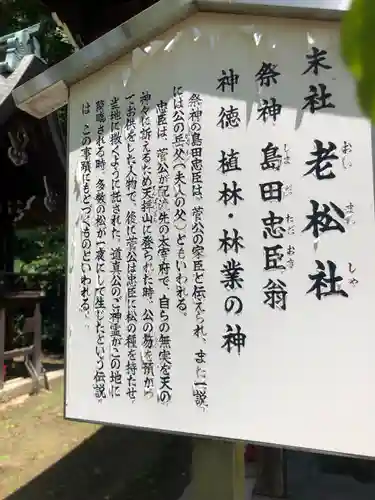 末社 老松社
おい まつ しゃ
祭神 島田忠臣翁
しま だ ただ おみ
神徳 植林・林業の神
祭神の島田忠臣は、菅公の家臣と伝えられ、また一説
には公の岳父(夫人の父)ともいわれる。
忠臣は、菅公が配流先の太宰府で、自らの無実を天の
神々に訴えるため天拝山に登られた時、公の笏を預かっ
てお供をした人物で、後に菅公は忠臣に松の種を持たせ
当地に撒くように託された。道真公のご神霊がこの地に
降臨された時、多数の松が一夜にして生じたという伝説
は、この事蹟にもとづくものといわれる。